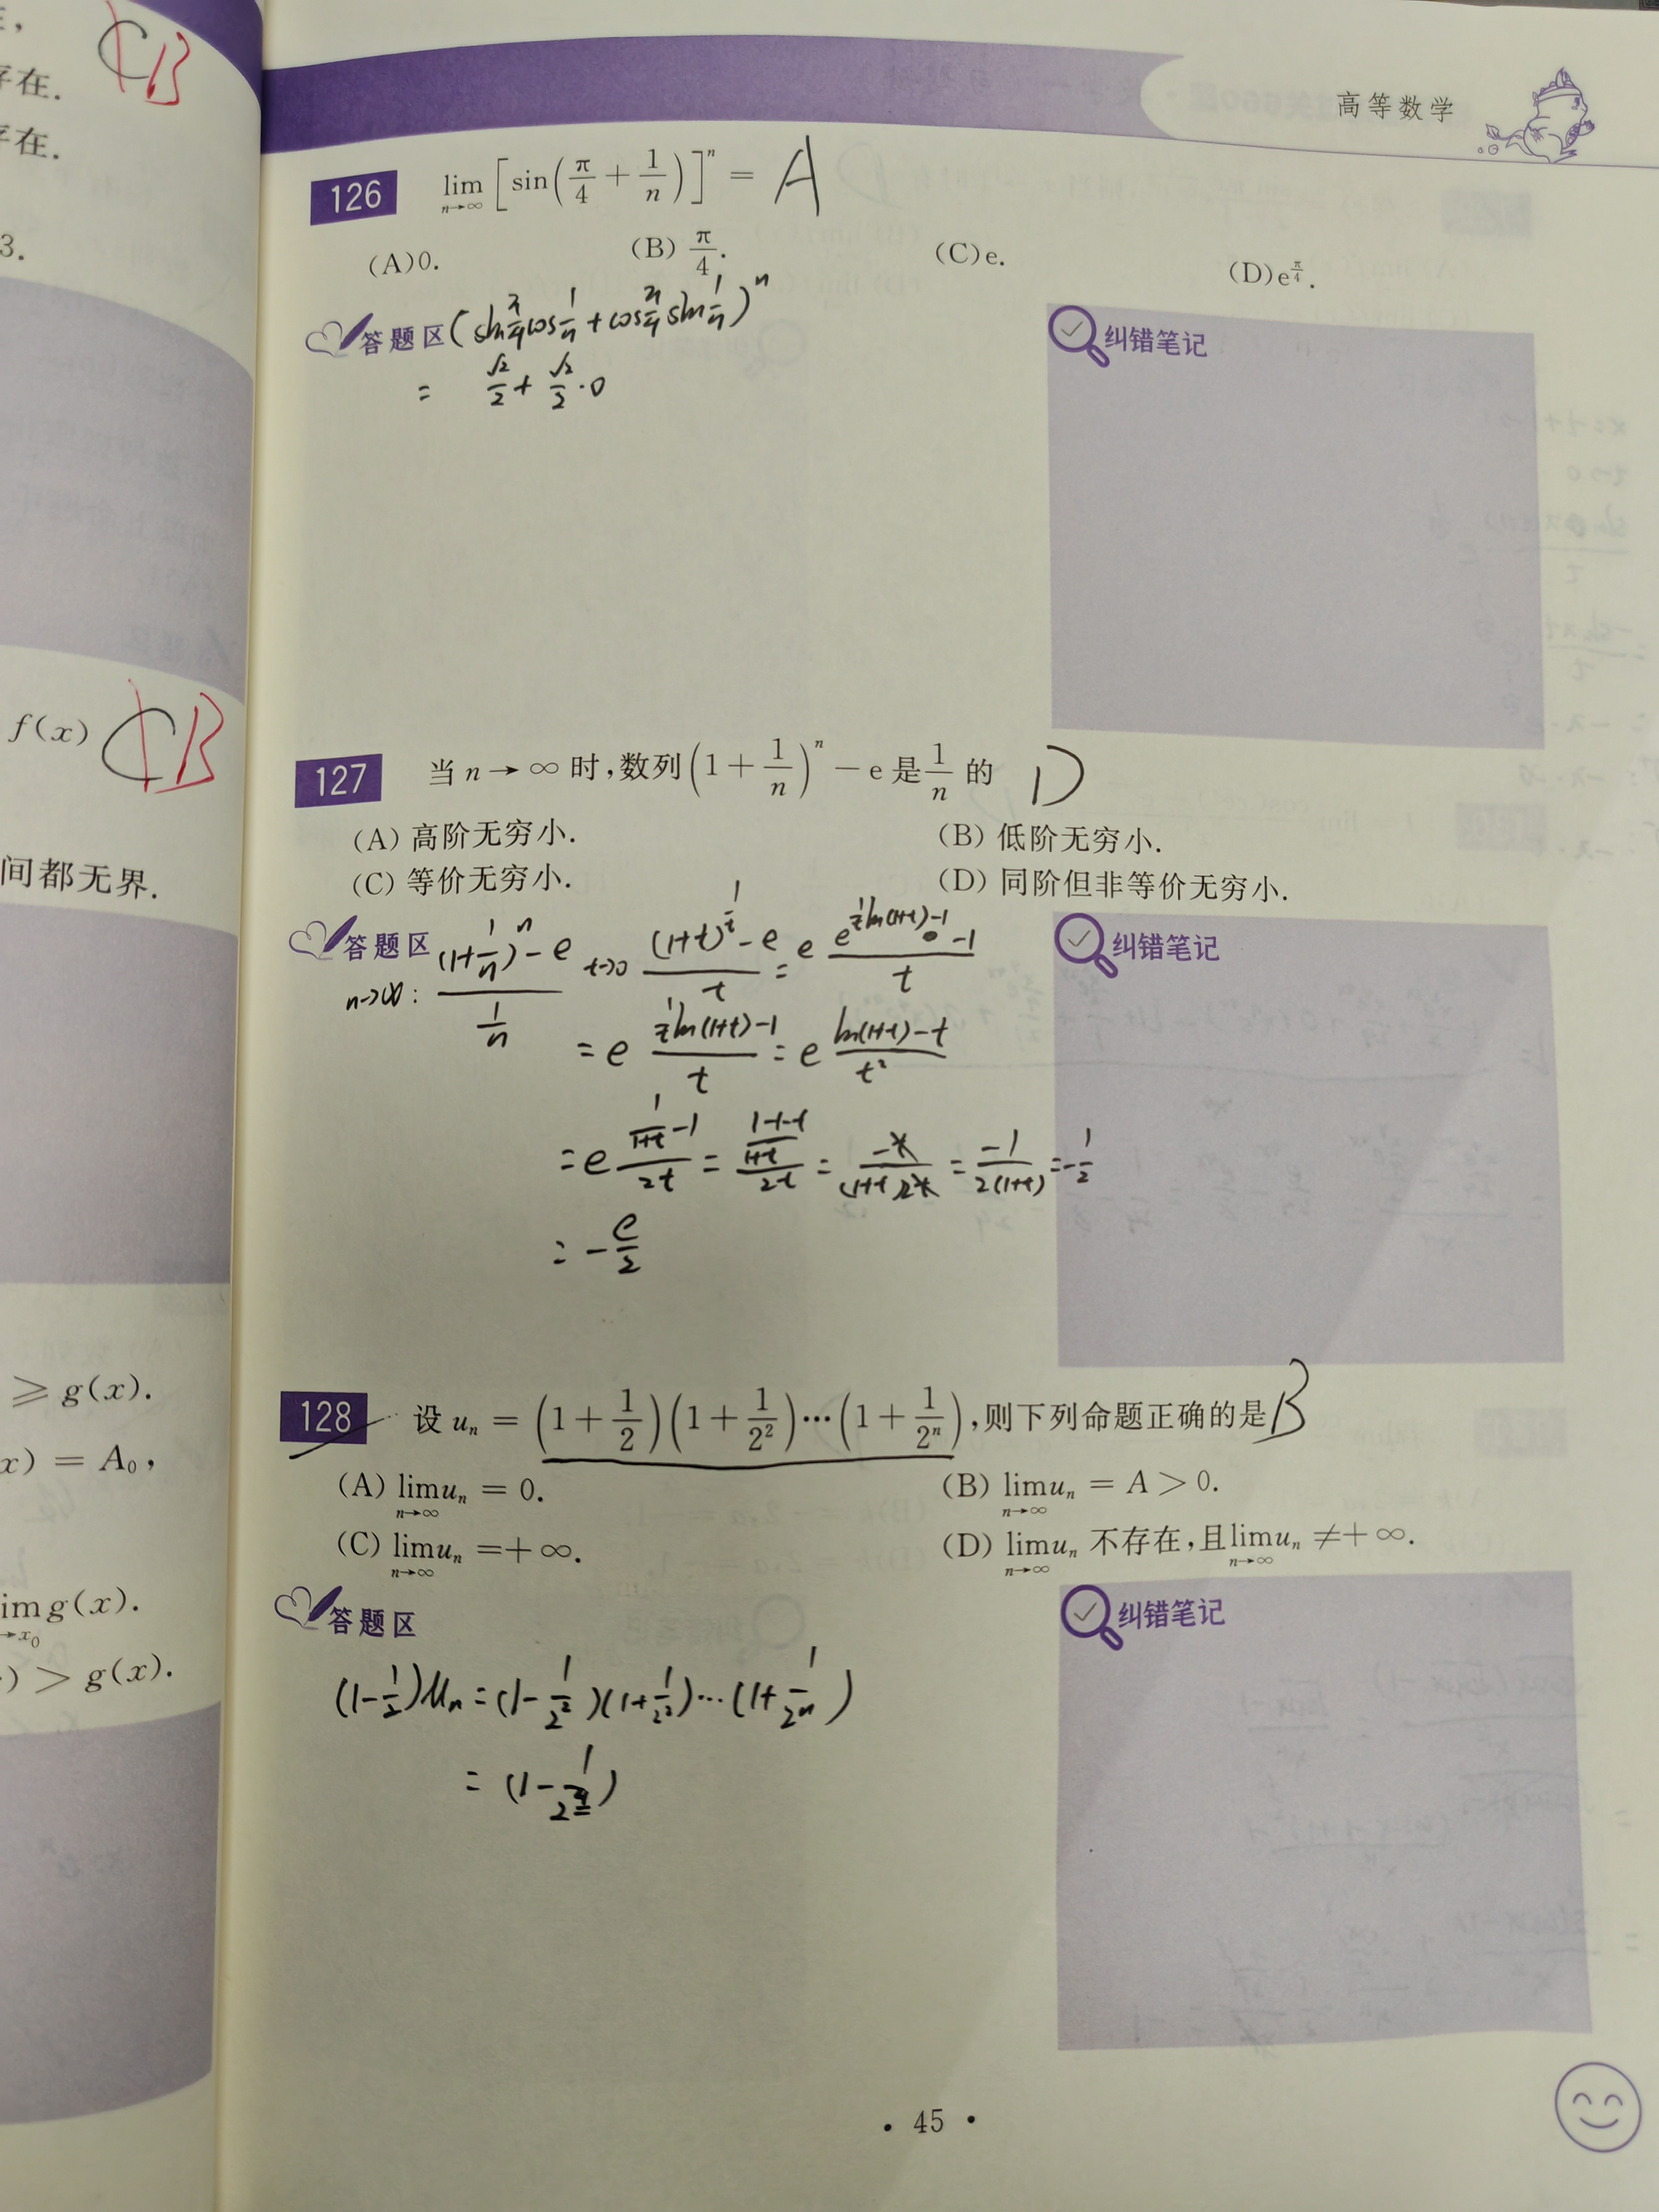 E,
存在.
存在.
3.
f(x)
间都无界.
⩾ g(x).
x) = A₀,
lim g(x).
→x₀
) > g(x).
CB
CB
高等数学
126 lim_{n→∞} [sin(π/4 + 1/n)]ⁿ = A
(A)0. (B) π/4. (C)e. (D)e^{π/4}.
答题区 (sin π/4 cos 1/n + cos π/4 sin 1/n)ⁿ
= √2/2 + √2/2 · 0
纠错笔记
127 当 n → ∞ 时,数列(1 + 1/n)ⁿ − e 是 1/n 的 D
(A) 高阶无穷小. (B) 低阶无穷小.
(C) 等价无穷小. (D) 同阶但非等价无穷小.
答题区
n→∞: ((1+1/n)ⁿ − e)/(1/n) t→0 ((1+t)^{1/t} − e)/t = e (e^{1/t ln(1+t) −1} − 1)/t
= e (1/t ln(1+t) − 1)/t = e (ln(1+t) − t)/t²
= e (1/(1+t) − 1)/2t = ((1−1−t)/(1+t))/2t = −t/((1+t)2t) = −1/(2(1+t)) = −1/2
= −e/2
纠错笔记
128 设 uₙ = (1 + 1/2)(1 + 1/2²)⋯(1 + 1/2ⁿ),则下列命题正确的是 B
(A) lim_{n→∞} uₙ = 0. (B) lim_{n→∞} uₙ = A > 0.
(C) lim_{n→∞} uₙ = + ∞. (D) lim_{n→∞} uₙ 不存在,且 lim_{n→∞} uₙ ≠ + ∞.
答题区
纠错笔记
(1−1/2)uₙ = (1−1/2²)(1+1/2²)⋯(1+1/2ⁿ)
· 45 ·